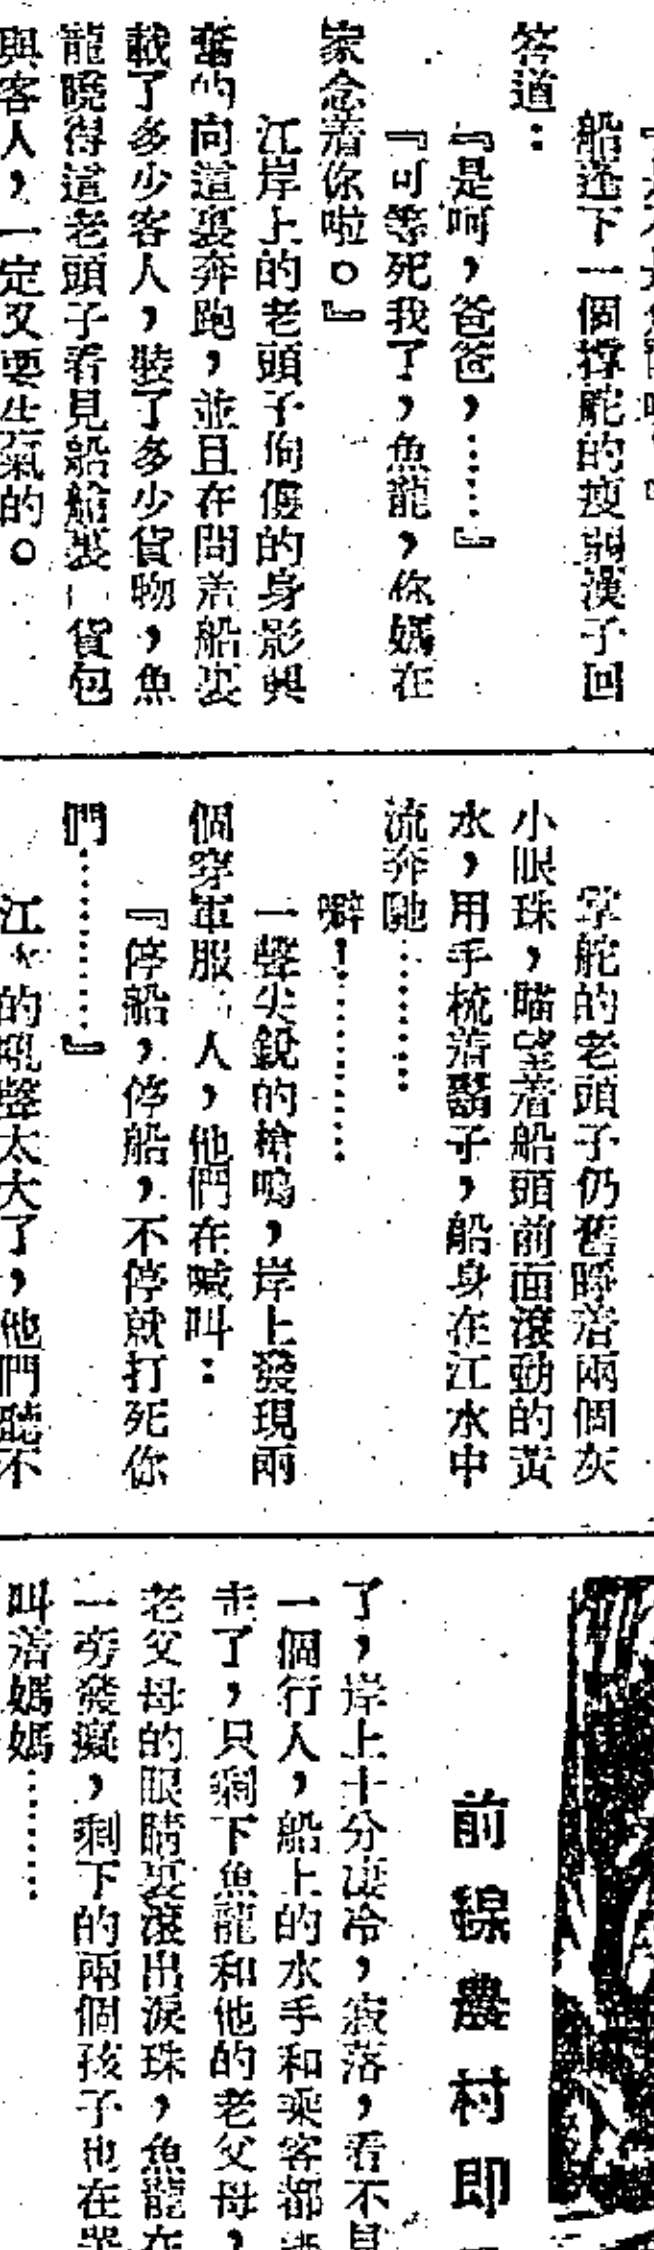 船蓬下一個撑舵的瘦弱漢子回
答道：
『是呵，爸爸，……』
『可等死我了，魚龍，你媽在
家念着你啦。』
江岸上的老頭子佝僂的身影興
奮的向這裏奔跑，並且在問着船裏
載了多少客人，裝了多少貨物，魚
龍曉得這老頭子看見船艙裏 貨包
與客人，一定又要生氣的。
掌舵的老頭子仍舊睜着兩個灰
小眼珠，瞄望着船頭前面滾動的黃
水，用手梳着鬍子，船身在江水中
流奔馳…………
噼！…………
一聲尖銳的槍鳴，岸上發現兩
個穿軍服 人，他們在喊叫：
『停船，停船，不停就打死你
們…………』
江水的吼聲太大了，他們聽不
前線農村即
了，岸上十分凄冷，寂落，看不見
一個行人，船上的水手和乘客都
走了，只剩下魚龍和他的老父母，
老父母的眼睛裏滾出淚珠，魚龍在
一旁發癡，剩下的兩個孩子也在哭
叫着媽媽…………